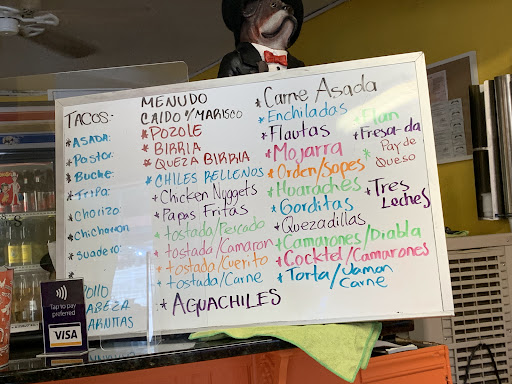 TACOS:
*ASADA:
*Pastor:
*Buche:
*Tripa:
*Chorizo:
*Chicharron
*Suadero:
MENUDO
CALDO %/MARISCO
*POZOLE
*BIRRIA
*QUEZA BIRRIA
*CHILES RELLENOS
*Chicken Nuggets
*Papas Fritas
*tostada/Pescado
*tostada/Camaron
*tostada/Cuerito
*tostada/Carne
*AGUACHILES
*Carne Asada
*Enchiladas
*Flautas
*Mojarra
*Orden/Sopes
*Huaraches
*Gorditas
*Quezadillas
*Camarones/Diabla
*Cocktel/Camarones
*Torta/Jamon
Carne
*Flan
*Fresa-da
*Pay de
Queso
*Tres
Leches
Tap to pay
preferred
VISA